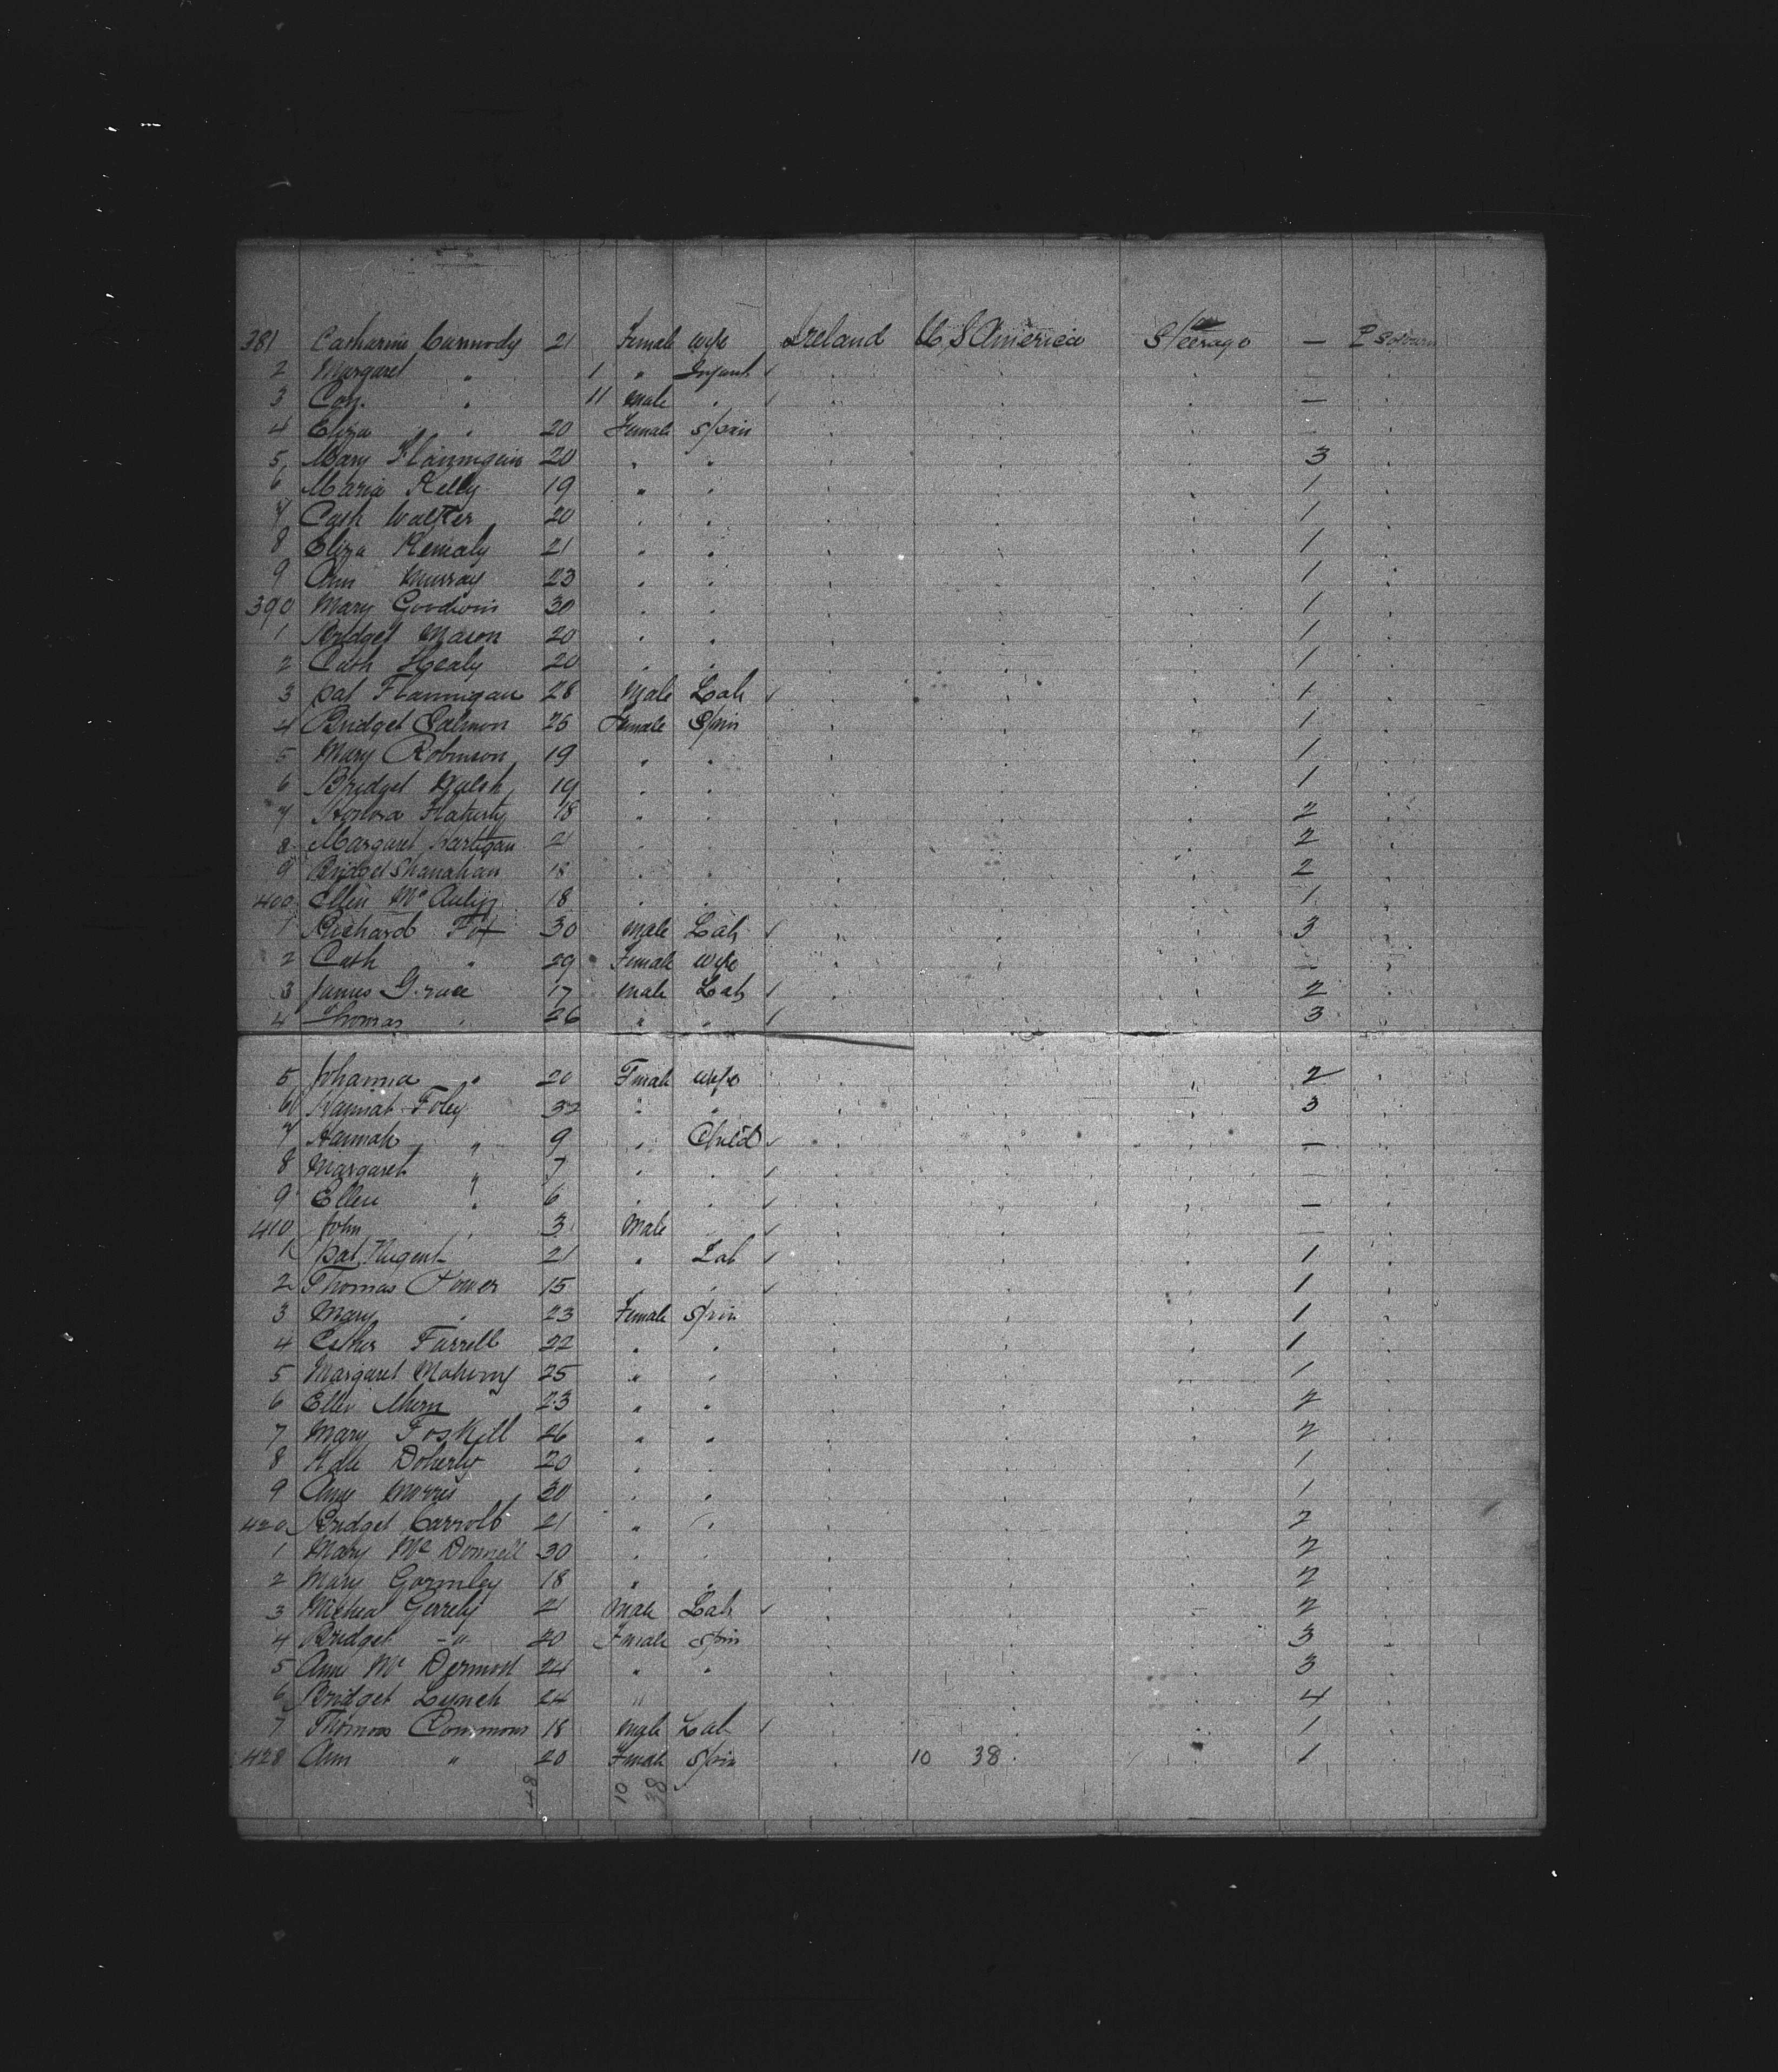 381 Catharine Carmody 21 Female Wife Ireland U S America Steerage — P Sojourn
2 Margaret " 1 " Infant ✓ —
3 Con. " 11 Male " ✓ —
4 Eliza " 20 Female Spin —
5 Mary Flannigain 20 " " 3
6 Maria Kelly 19 " " 1
7 Cath Walker 20 " " 1
8 Eliza 21 " " 1
9 Ann Murray 23 " " 1
390 Mary Goodwin 30 " " 1
1 Bridget Mason 20 " " 1
2 Cath Healy 20 " " 1
3 Pat Flannigan 28 Male Lab ✓ 1
4 Bridget Salmon 25 Female Spin 1
5 Mary Robinson 19 " " 1
6 Bridget Walsh 19 " " 1
7 Honora Flaherty 18 " " 2
8 Margaret Hartigan 21 " " 2
9 Bridget Shanahan 18 " " 2
400 Ellen 18 " " 1
1 Richard Fox 30 Male Lab ✓ 3
2 Cath " 29 Female Wife —
3 James Grace 17 Male Lab ✓ 2
4 Thomas " 26 " " ✓ 3
5 Johanna " 20 Female Wife 2
6 Hannah Foley 32 " " 3
7 Hannah " 9 " Child ✓ —
8 Margaret " 7 " " ✓ —
9 Ellen " 6 " " ✓ —
410 John " 3 Male " ✓ —
1 Pat Nugent 21 " Lab ✓ 1
2 Thomas Power 15 " " ✓ 1
3 Mary " 23 Female Spin 1
4 Esther Farrell 22 " " 1
5 Margaret Mahony 25 " " 1
6 Ellen Ahern 23 " " 2
7 Mary Foskill 26 " " 2
8 Doherty 20 " " 1
9 Anne Morris 20 " " 1
420 Bridget Carroll 21 " " 2
1 Mary Mc Donnell 30 " " 2
2 Mary Gormley 18 " " 2
3 Micheal Gerrely 21 Male Lab ✓ 2
4 Bridget -"- 20 Female Spin 3
5 Ann Mc Dermott 24 " " 3
6 Bridget Lynch 24 " 4
7 Thomas Commons 18 Male Lab ✓ 1
428 Ann " 20 Female Spin 10 38 1
48 10 38